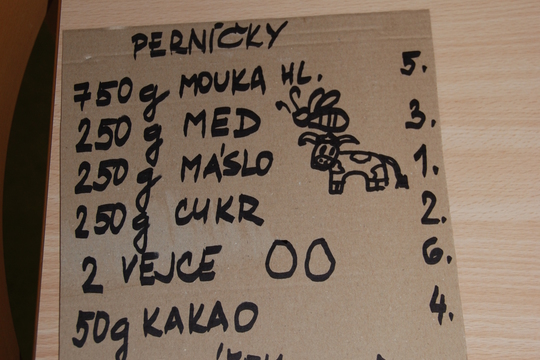 PERNÍČKY
750 g MOUKA HL. 5.
250 g MED 3.
250 g MÁSLO 1.
250 g CUKR 2.
2 VEJCE 6.
50g KAKAO 4.